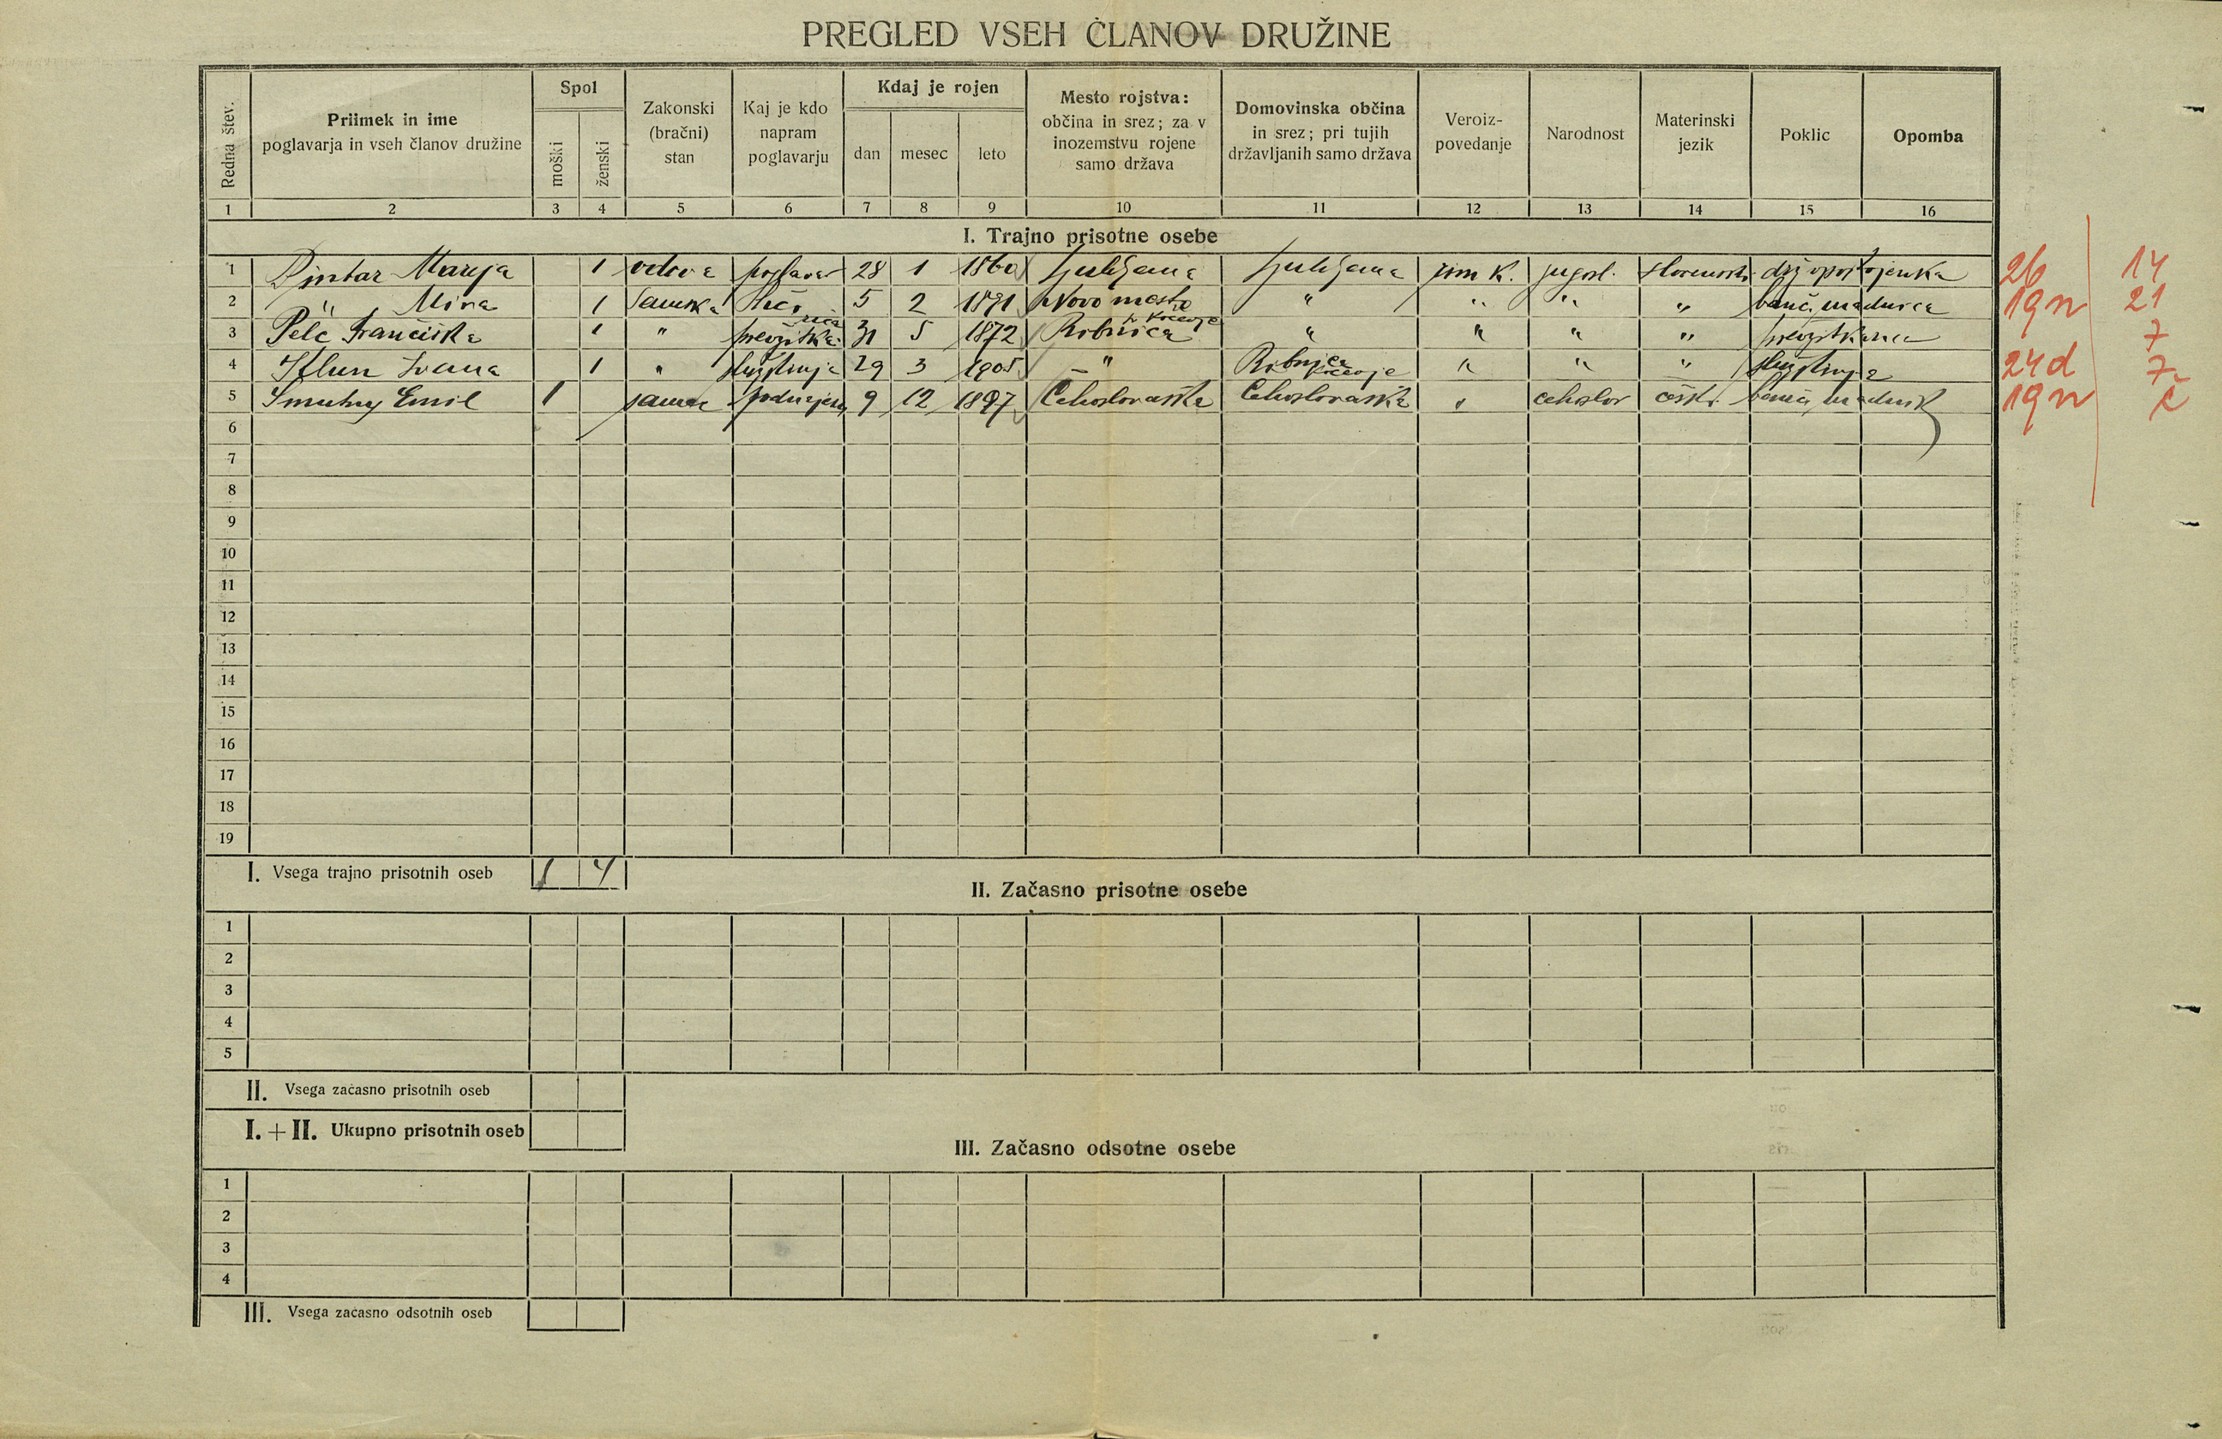 PREGLED VSEH ČLANOV DRUŽINE
Redna štev.
Priimek in ime
poglavarja in vseh članov družine
Spol
moški
ženski
Zakonski
(bračni)
stan
Kaj je kdo
napram
poglavarju
Kdaj je rojen
dan
mesec
leto
Mesto rojstva:
občina in srez; za v
inozemstvu rojene
samo država
Domovinska občina
in srez; pri tujih
državljanih samo država
Veroiz-
povedanje
Narodnost
Materinski
jezik
Poklic
Opomba
1 2 3 4 5 6 7 8 9 10 11 12 13 14 15 16
I. Trajno prisotne osebe
1 Marija 1 vdova poglavar 28 1 1860 Ljubljana Ljubljana rim k. jugosl. 26 14
2 " Mira 1 samska hči 5 2 1891 Novo mesto " " " " banč. uradnica 19n 21
3 Pelc Frančiška 1 " 31 5 1872 Ribnica Kočevje " " " " 7
4 Ivana 1 " služkinja 29 3 1905 " Ribnica Kočevje " " " služkinja 24d 7
5 Smutny Emil 1 samec podnajem 9 12 1897 Čehoslovaška Čehoslovaška " čehoslov češki banč. uradnik 19n č
6
7
8
9
10
11
12
13
14
15
16
17
18
19
I. Vsega trajno prisotnih oseb 1 4
II. Začasno prisotne osebe
1
2
3
4
5
II. Vsega začasno prisotnih oseb
I. + II. Ukupno prisotnih oseb
III. Začasno odsotne osebe
1
2
3
4
III. Vsega začasno odsotnih oseb